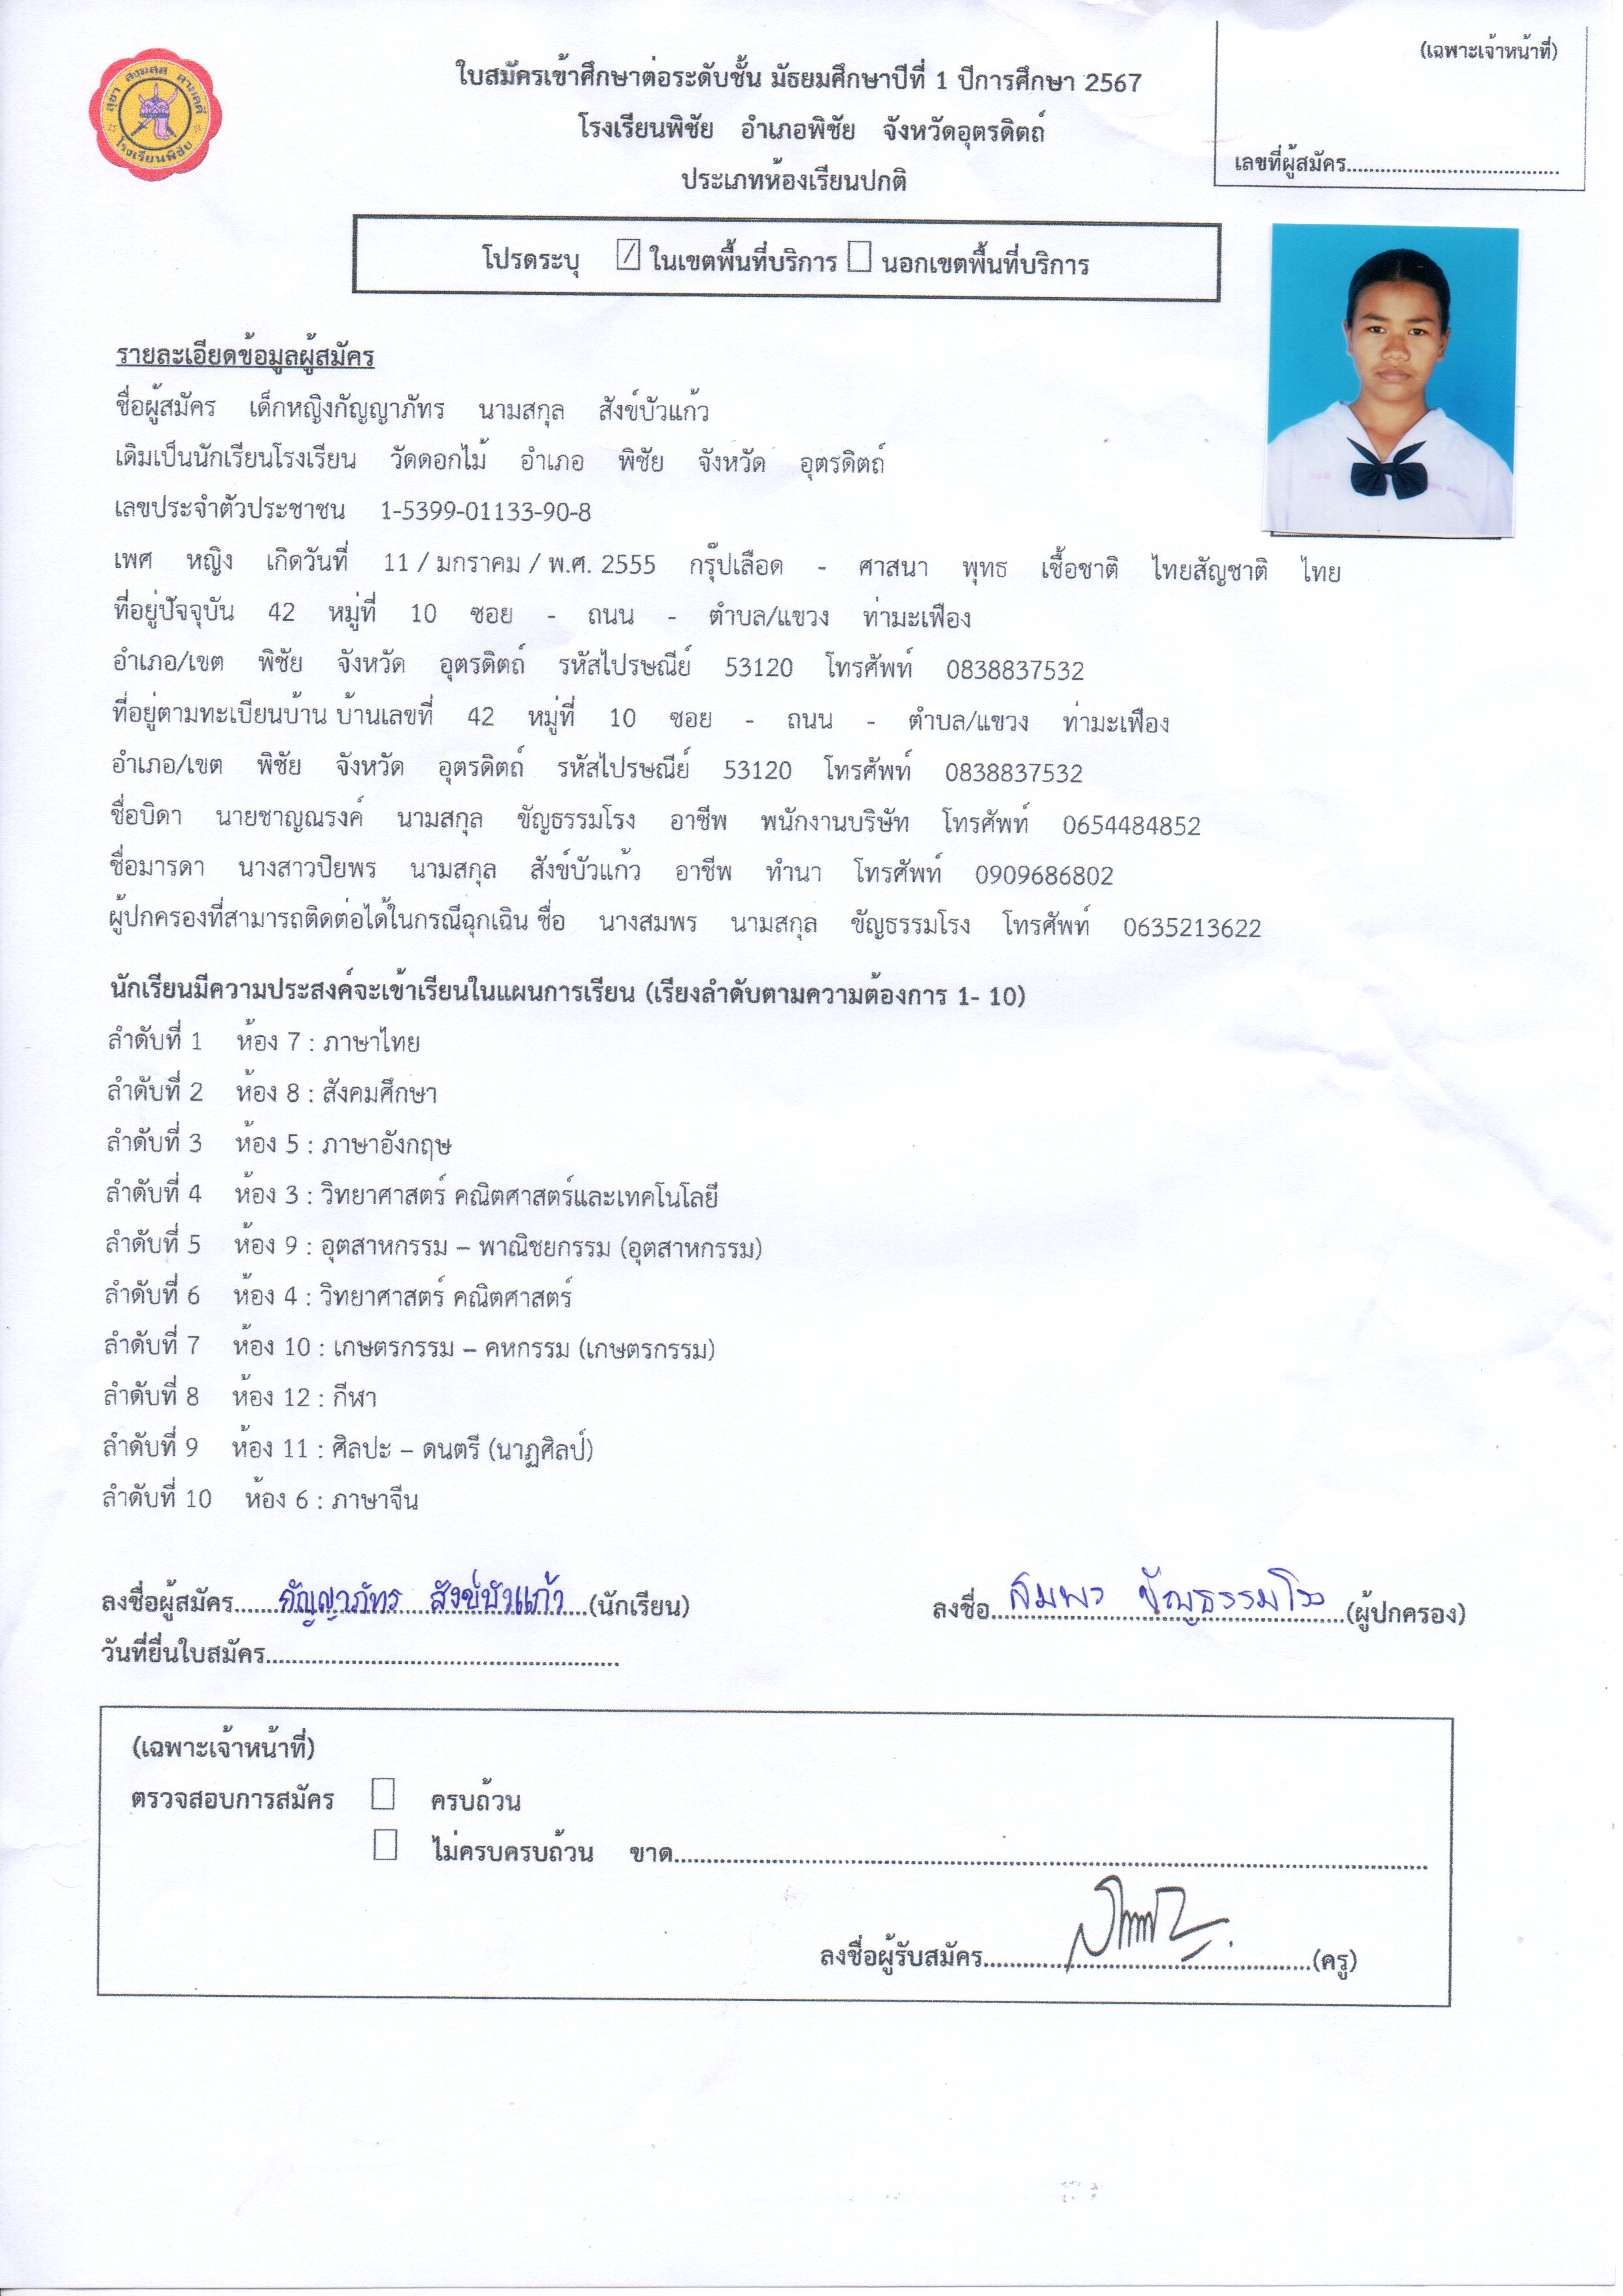 (เฉพาะเจ้าหน้าที่)
ใบสมัครเข้าศึกษาต่อระดับชั้น มัธยมศึกษาปีที่ 1 ปีการศึกษา 2567
โรงเรียนพิชัย อำเภอพิชัย จังหวัดอุตรดิตถ์
เลขที่ผู้สมัคร.......................................
ประเภทห้องเรียนปกติ
โรงเรียนพิชัย
โปรดระบุ ☑ ในเขตพื้นที่บริการ ☐ นอกเขตพื้นที่บริการ
รายละเอียดข้อมูลผู้สมัคร
ชื่อผู้สมัคร เด็กหญิงกัญญาภัทร นามสกุล สังข์บัวแก้ว
เดิมเป็นนักเรียนโรงเรียน วัดดอกไม้ อำเภอ พิชัย จังหวัด อุตรดิตถ์
เลขประจำตัวประชาชน 1-5399-01133-90-8
เพศ หญิง เกิดวันที่ 11 / มกราคม / พ.ศ. 2555 กรุ๊ปเลือด - ศาสนา พุทธ เชื้อชาติ ไทยสัญชาติ ไทย
ที่อยู่ปัจจุบัน 42 หมู่ที่ 10 ซอย - ถนน - ตำบล/แขวง ท่ามะเฟือง
อำเภอ/เขต พิชัย จังหวัด อุตรดิตถ์ รหัสไปรษณีย์ 53120 โทรศัพท์ 0838837532
ที่อยู่ตามทะเบียนบ้าน บ้านเลขที่ 42 หมู่ที่ 10 ซอย - ถนน - ตำบล/แขวง ท่ามะเฟือง
อำเภอ/เขต พิชัย จังหวัด อุตรดิตถ์ รหัสไปรษณีย์ 53120 โทรศัพท์ 0838837532
ชื่อบิดา นายชาญณรงค์ นามสกุล ขัญธรรมโรง อาชีพ พนักงานบริษัท โทรศัพท์ 0654484852
ชื่อมารดา นางสาวปิยพร นามสกุล สังข์บัวแก้ว อาชีพ ทำนา โทรศัพท์ 0909686802
ผู้ปกครองที่สามารถติดต่อได้ในกรณีฉุกเฉิน ชื่อ นางสมพร นามสกุล ขัญธรรมโรง โทรศัพท์ 0635213622
นักเรียนมีความประสงค์จะเข้าเรียนในแผนการเรียน (เรียงลำดับตามความต้องการ 1- 10)
ลำดับที่ 1 ห้อง 7 : ภาษาไทย
ลำดับที่ 2 ห้อง 8 : สังคมศึกษา
ลำดับที่ 3 ห้อง 5 : ภาษาอังกฤษ
ลำดับที่ 4 ห้อง 3 : วิทยาศาสตร์ คณิตศาสตร์และเทคโนโลยี
ลำดับที่ 5 ห้อง 9 : อุตสาหกรรม – พาณิชยกรรม (อุตสาหกรรม)
ลำดับที่ 6 ห้อง 4 : วิทยาศาสตร์ คณิตศาสตร์
ลำดับที่ 7 ห้อง 10 : เกษตรกรรม – คหกรรม (เกษตรกรรม)
ลำดับที่ 8 ห้อง 12 : กีฬา
ลำดับที่ 9 ห้อง 11 : ศิลปะ – ดนตรี (นาฏศิลป์)
ลำดับที่ 10 ห้อง 6 : ภาษาจีน
ลงชื่อผู้สมัคร........กัญญาภัทร สังข์บัวแก้ว....(นักเรียน) ลงชื่อ...สมพร ขัญธรรมโรง...(ผู้ปกครอง)
วันที่ยื่นใบสมัคร......................................................
(เฉพาะเจ้าหน้าที่)
ตรวจสอบการสมัคร ☐ ครบถ้วน
☐ ไม่ครบครบถ้วน ขาด....................................................................................
ลงชื่อผู้รับสมัคร..................................................(ครู)